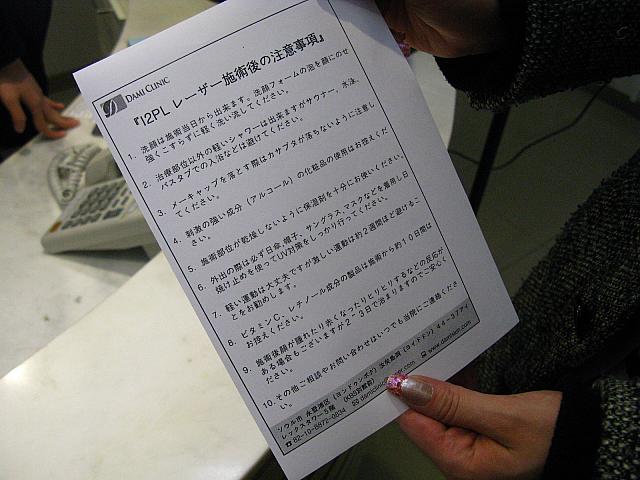 DAMI CLINIC
『I2PL レーザー施術後の注意事項』
1. 洗顔は施術当日から出来ます。洗顔フォームの泡を顔にのせ
強くこすらずに軽く洗い流してください。
2. 治療部位以外の軽いシャワーは出来ますがサウナー、水泳、
バスタブでの入浴などは避けてください。
3. メーキャップを落とす際はカサブタが落ちないように注意し
てください。
4. 刺激の強い成分（アルコール）の化粧品の使用はお控えくだ
さい。
5. 施術部位が乾燥しないように保湿剤を十分にお使いください。
6. 外出の際は必ず日傘、帽子、サングラス、マスクなどを着用し日
焼け止めを使ってUV対策をしっかり行ってください。
7. 軽い運動は大丈夫ですが激しい運動は約2週間ほど避けるこ
とをお勧めします。
8. ビタミンC、レチノール成分の製品は施術から約10日間は
お控えください。
9. 施術後顔が腫れたり赤くなったりヒリヒリするなどの反応が
ある場合もございますが2-3日で治まりますのでご安心く
ださい。
10. その他ご相談やお問い合わせはいつでも当院にご連絡くださ
い。
ソウル市 永登浦区（ヨンドゥンポグ）汝矣島洞（ヨイドドン）44-37アイ
レックスタワー5階 (KBS別館前)
☎82-10-8872-0834